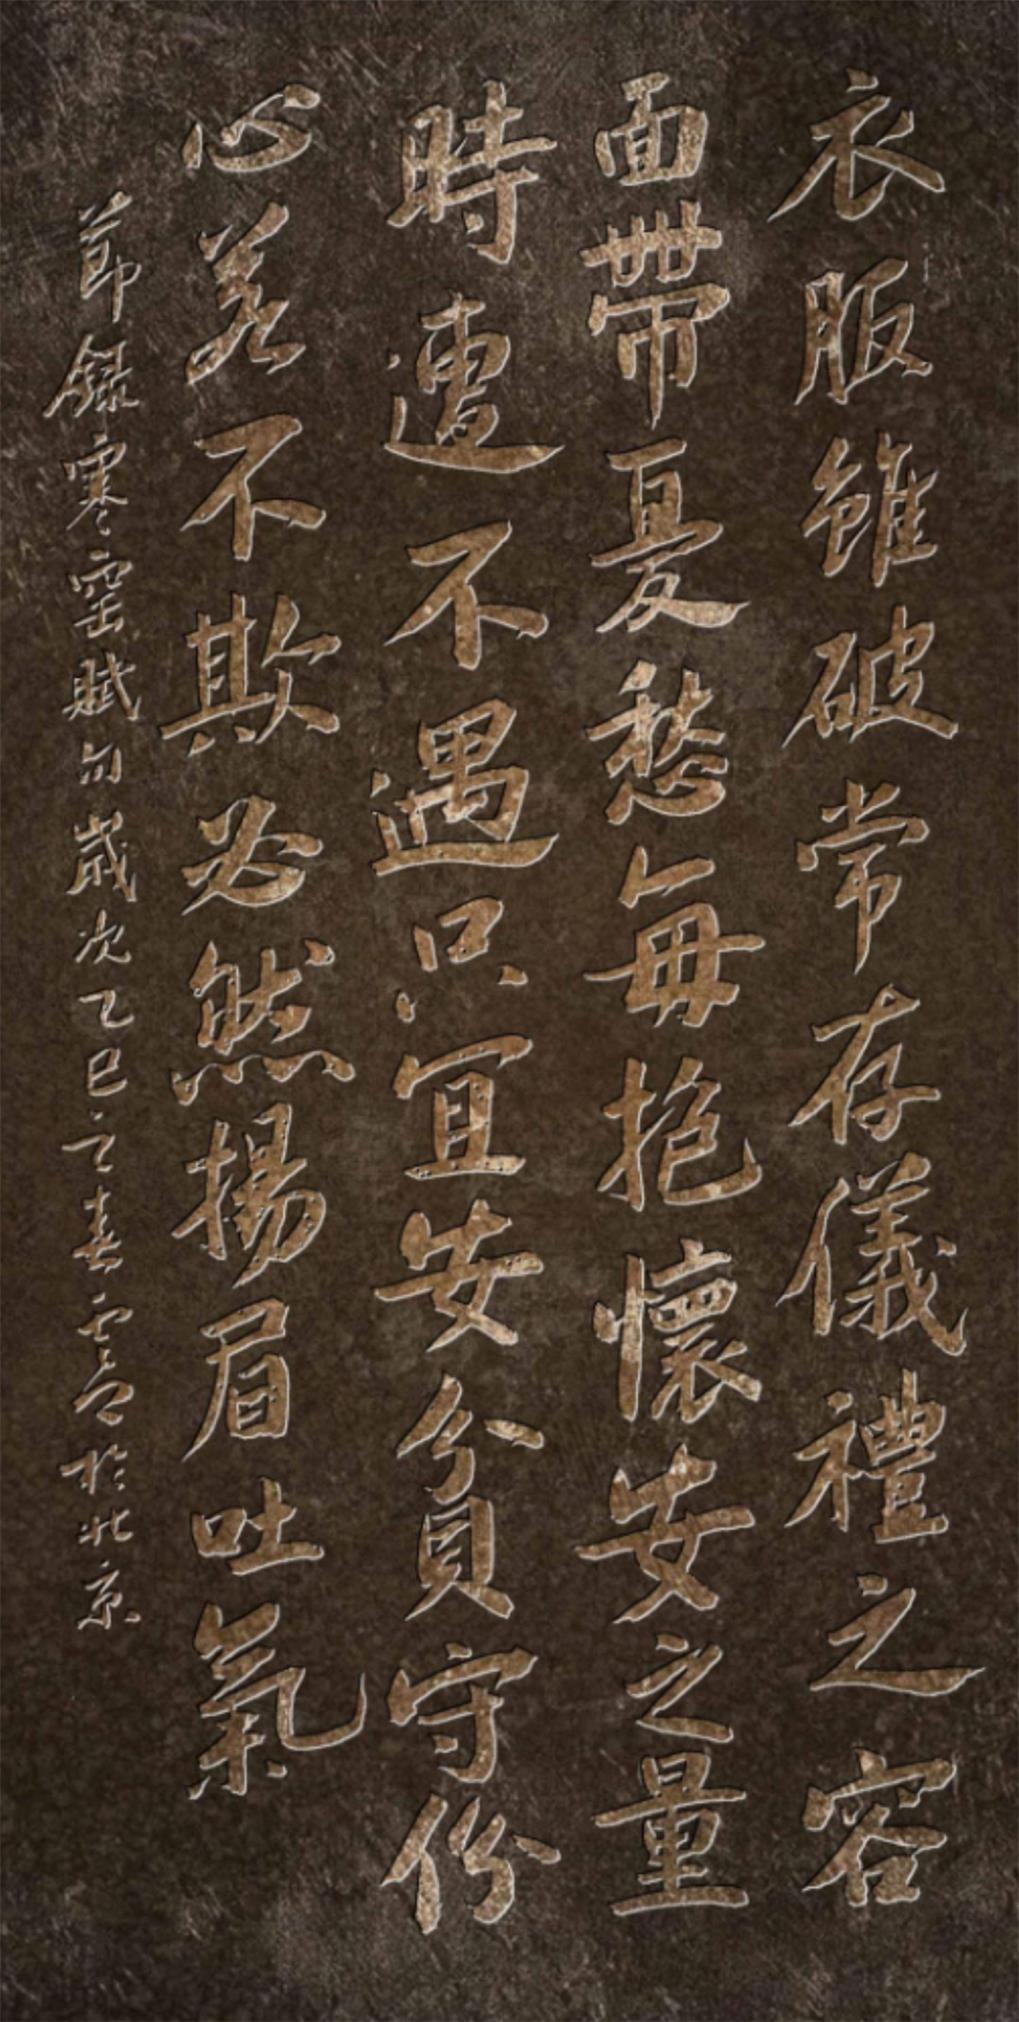 衣服雖破常存儀禮之容
面帶憂愁每抱懷安之量
時遭不遇只宜安貧守份
心若不欺必然揚眉吐氣
節錄寒窑賦句歲次乙巳之春雲 於北京